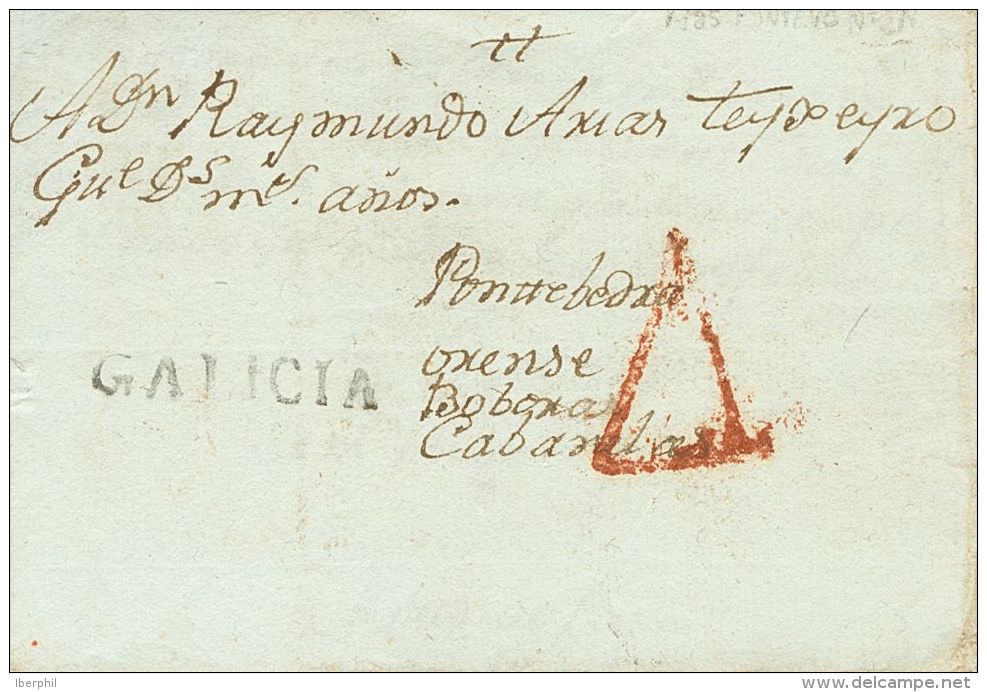 tt
A Dn Raymundo Arias Teyxeyro
Gue Ds ms. años.
Ponttebedra
orense
Boboras
Cabanelas
GALICIA
Iberphil
www.delcampe.net